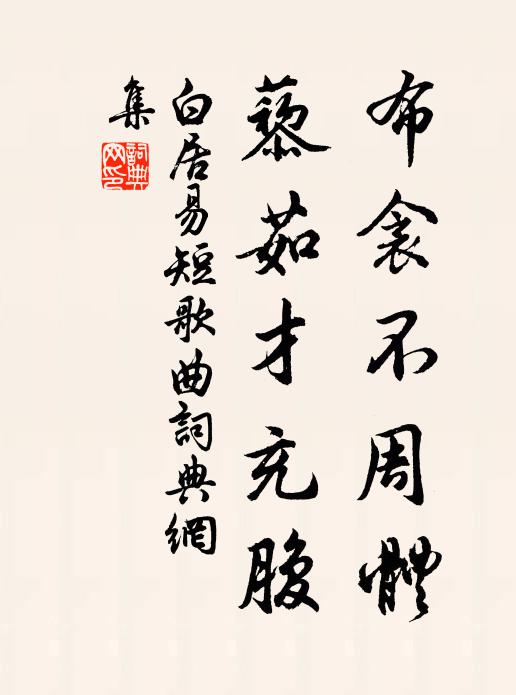 布衾不周體
藜茹才充腹
白居易短歌曲詞典網
集
詞典網印